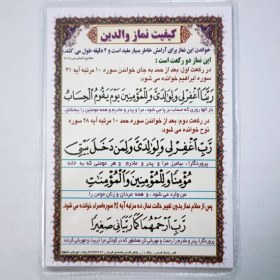 کیفیت نماز والدین
خواندن این نماز برای آرامش خاطر بسیار مفید است و ۳ دقیقه طول می کشد
این نماز دو رکعت است :
در رکعت اول: بعد از حمد به جای خواندن سوره ۱۰ مرتبه آیه ۴۱
سوره ابراهیم خوانده می شود:
رَبَّنَا اغْفِرْ لِي وَلِوَالِدَيَّ وَلِلْمُؤْمِنِينَ يَوْمَ يَقُومُ الْحِسَابُ
در رکعت دوم: بعد از خواندن سوره حمد ۱۰ مرتبه آیه ۲۸ سوره
نوح خوانده می شود:
رَبِّ اغْفِرْ لِي وَلِوَالِدَيَّ وَلِمَنْ دَخَلَ بَيْتِي
پروردگارا، بیامرز مرا و پدر و مادرم و هر مومنی که به خانه
مُؤْمِنًا وَلِلْمُؤْمِنِينَ وَالْمُؤْمِنَاتِ
من وارد می شود، و همه مردان و زنان مومن را
پس از سلام نماز بدون تغییر حالت نماز، ده مرتبه آیه ۲۴ سوره اسراء خوانده می شود.
رَبِّ ارْحَمْهُمَا كَمَا رَبَّيَانِي صَغِيرًا